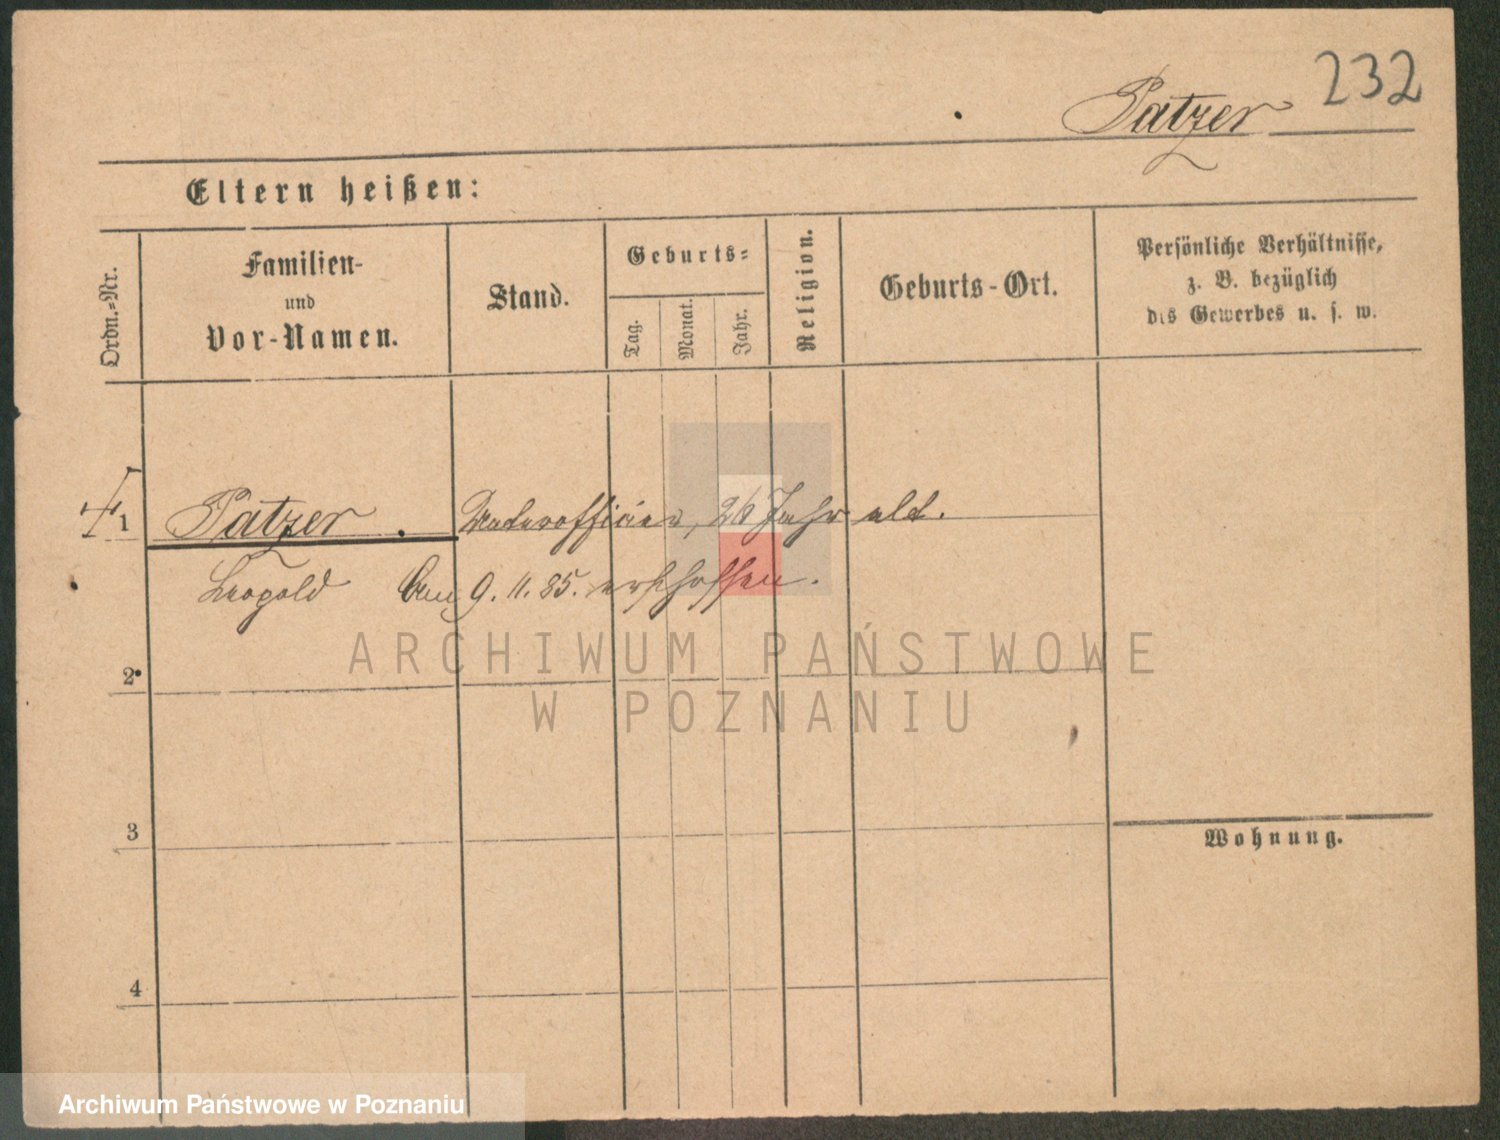 232
Patzer
Eltern heißen:
Ordn.-Nr.
Familien-
und
Vor-Namen.
Stand.
Geburts-
Tag.
Monat.
Jahr.
Religion.
Geburts-Ort.
Persönliche Verhältnisse,
z. B. bezüglich
des Gewerbes u. s. w.
1 Patzer. Unterofficier, 26 Jahr alt.
Leopold Am 9. 11. 85. erschossen.
ARCHIWUM PAŃSTWOWE
2
W POZNANIU
3
Wohnung.
4
Archiwum Państwowe w Poznaniu